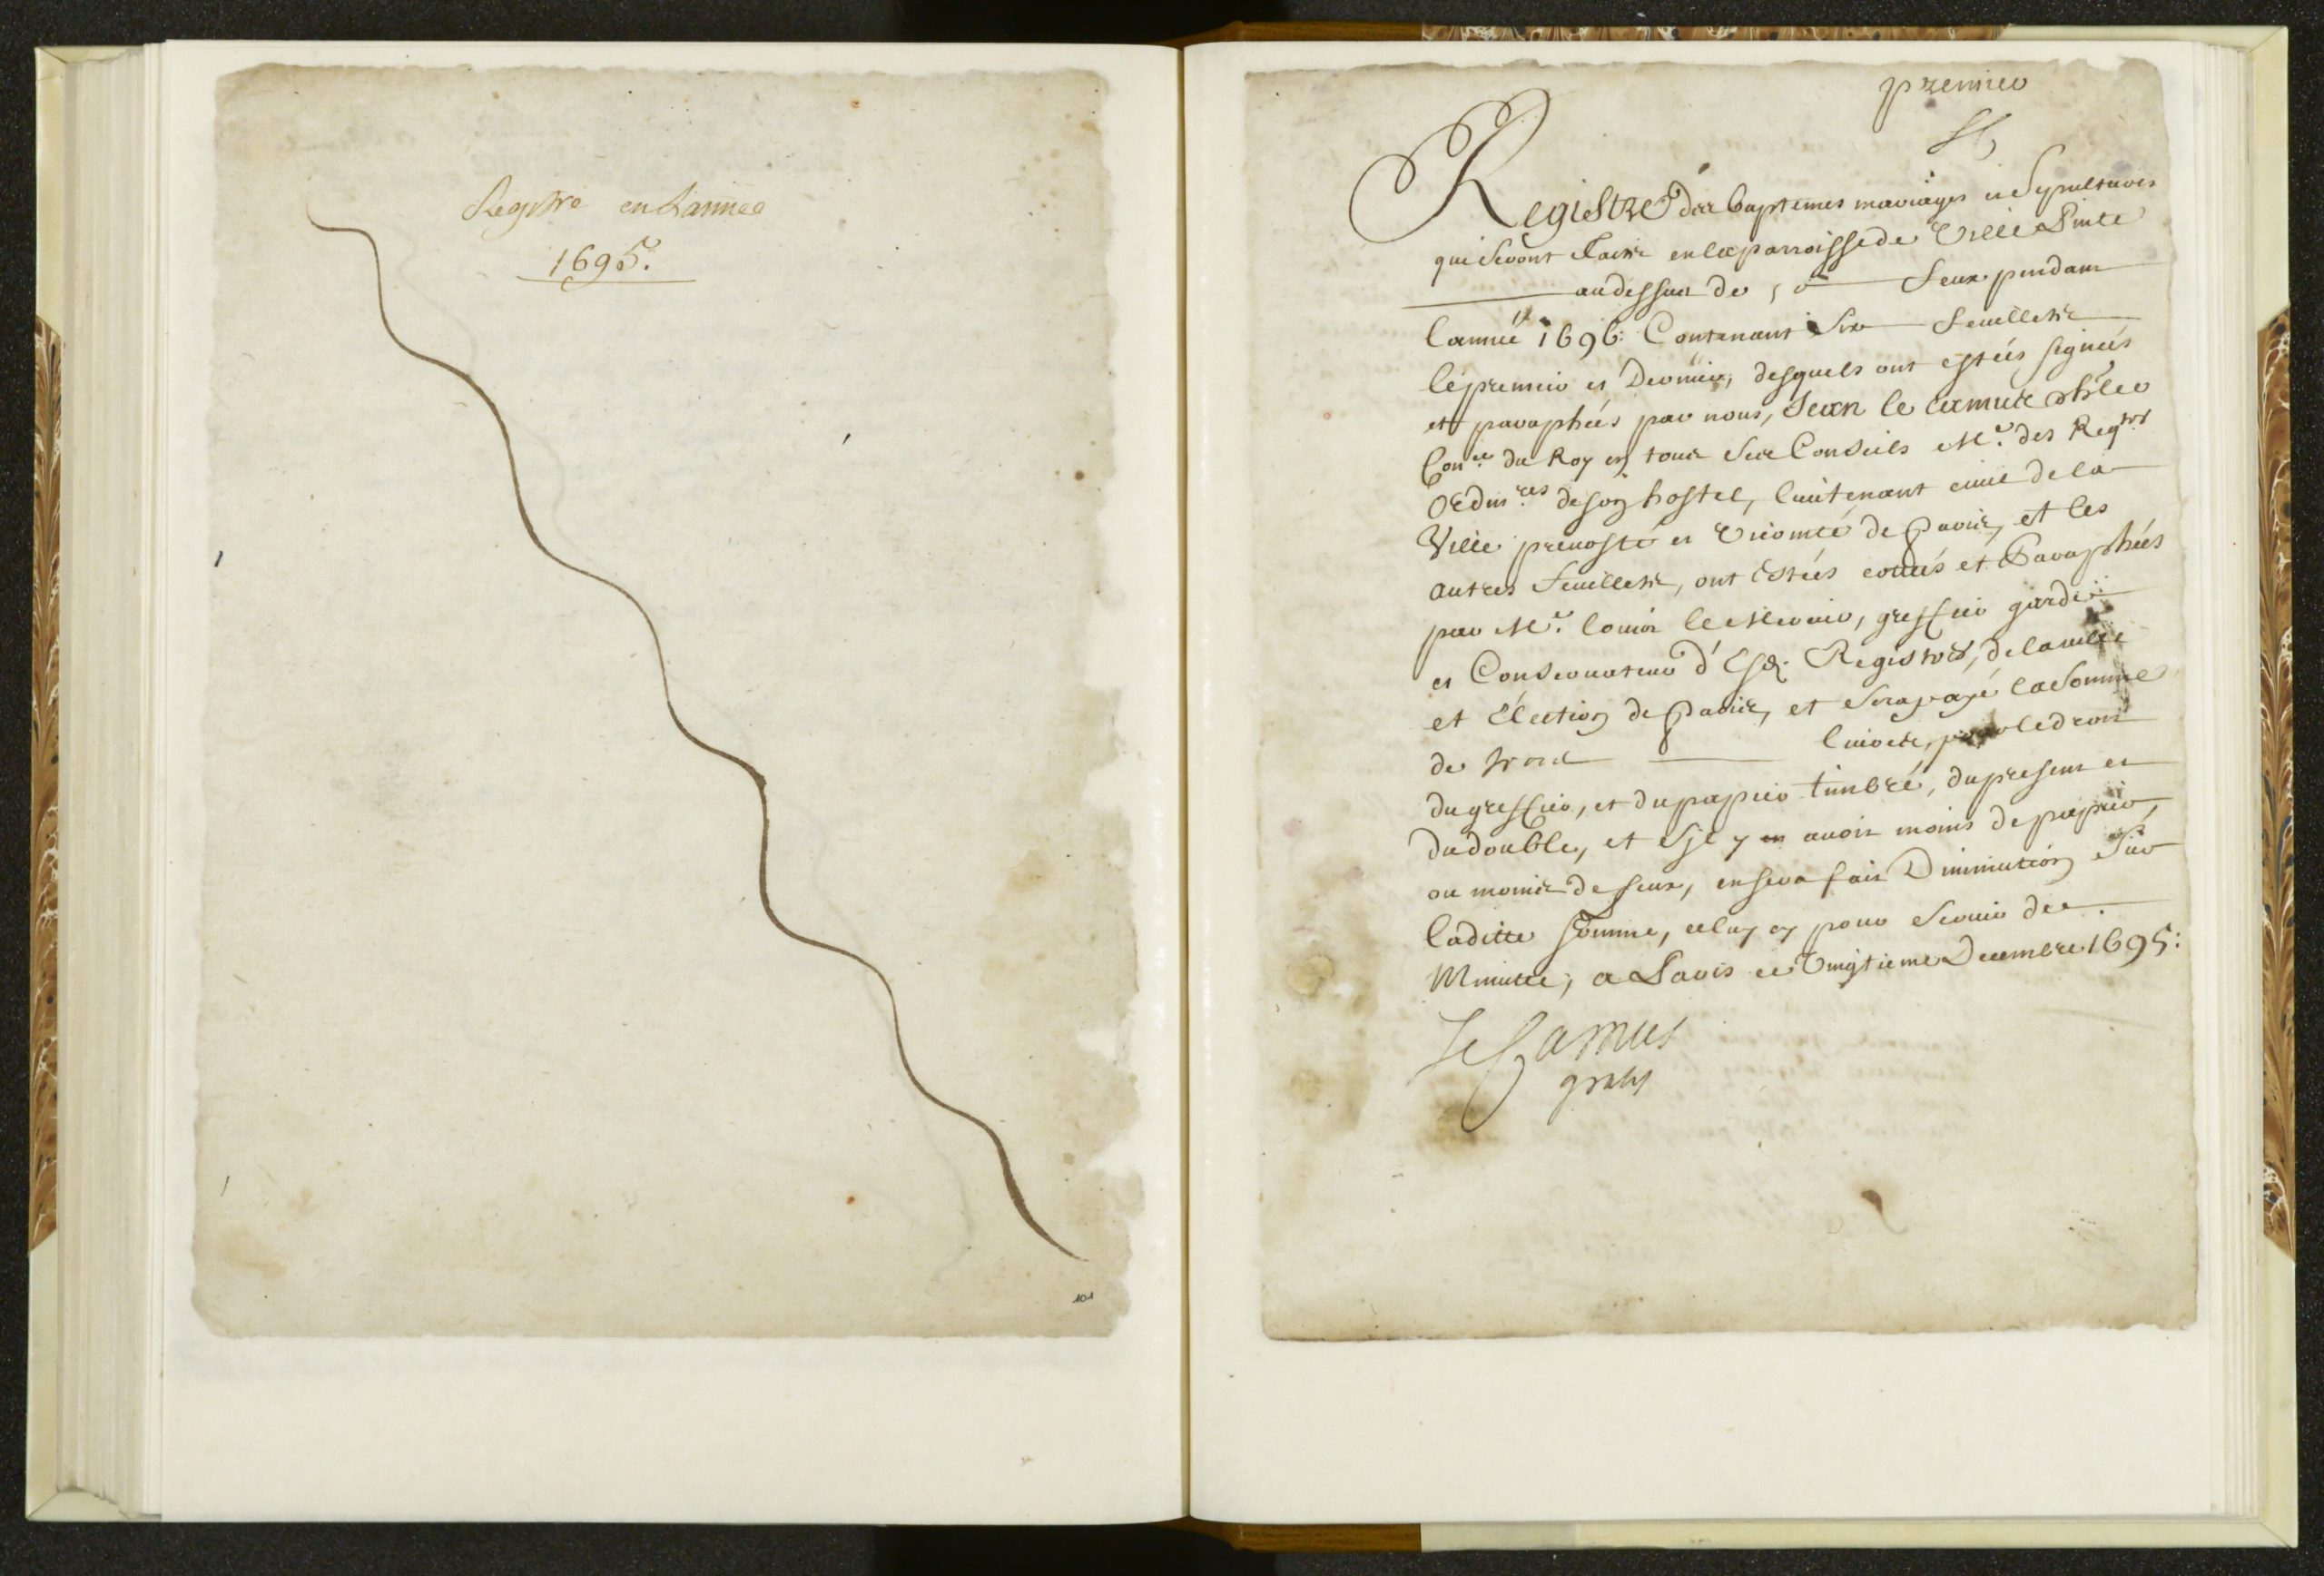 Registre en Lannee
1695.
101
premier
Registre des baptemes mariages et Sepultures
qui Seront Faits en la parroisse de Ville Pinte
au dessus de 50 feux pendant
lannéé 1696: Contenant Six feuillets
lé premier et Dernier, desquels ont estéés signéés
et paraphéés par nous, Jean le camus chler
Coner. du Roy en tous Ses Conseils Me. des Reqtes
Ordin.res de son hostel, lieutenant civil de la
Ville prevosté et Vicomté de paris, et les
autres feuillets, ont Estéés cottéés et Paraphéés
par Me. louis le Mercier, greffier garde
et Conservateur d'Esd. Registres, de la ville
et Élection de paris, et Sera payé la Somme
de trois livres, pour le droit
du greffier, et du papier timbré, du present et
du double, et Sjl y en avoit moins de papier,
ou moins de feux, en sera fait Diminution Sur
laditte Somme, celuy cy pour Servir de
Minutte, a Paris ce Vingtieme Decembre 1695:
Le Camus
gratis